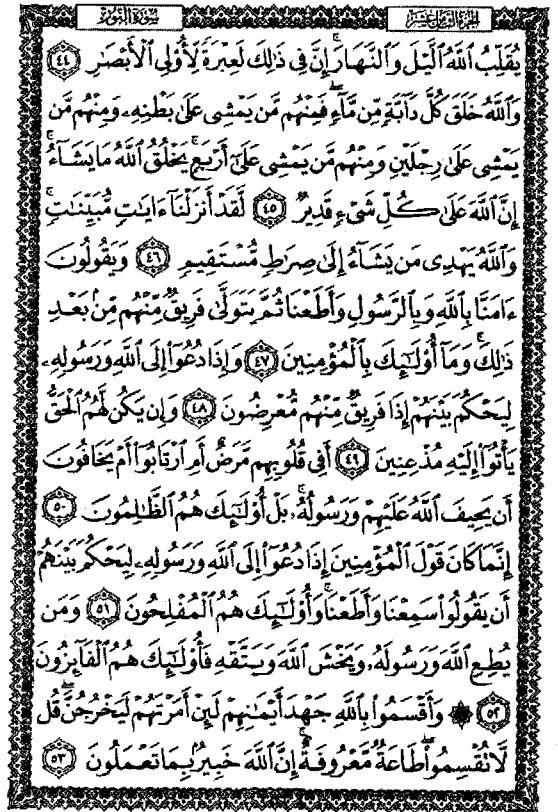 سُورَةُ النُّورِ الجُزْءُ الثَّامِنَ عَشَرَ
يُقَلِّبُ ٱللَّهُ ٱلَّيْلَ وَٱلنَّهَارَ إِنَّ فِي ذَٰلِكَ لَعِبْرَةً لِّأُوْلِي ٱلْأَبْصَٰرِ ٤٤
وَٱللَّهُ خَلَقَ كُلَّ دَآبَّةٍ مِّن مَّآءٍ فَمِنْهُم مَّن يَمْشِي عَلَىٰ بَطْنِهِۦ وَمِنْهُم مَّن
يَمْشِي عَلَىٰ رِجْلَيْنِ وَمِنْهُم مَّن يَمْشِي عَلَىٰٓ أَرْبَعٍ يَخْلُقُ ٱللَّهُ مَا يَشَآءُ
إِنَّ ٱللَّهَ عَلَىٰ كُلِّ شَيْءٍ قَدِيرٌ ٤٥ لَّقَدْ أَنزَلْنَآ ءَايَٰتٍ مُّبَيِّنَٰتٍ
وَٱللَّهُ يَهْدِي مَن يَشَآءُ إِلَىٰ صِرَٰطٍ مُّسْتَقِيمٍ ٤٦ وَيَقُولُونَ
ءَامَنَّا بِٱللَّهِ وَبِٱلرَّسُولِ وَأَطَعْنَا ثُمَّ يَتَوَلَّىٰ فَرِيقٌ مِّنْهُم مِّنۢ بَعْدِ
ذَٰلِكَ وَمَآ أُوْلَٰٓئِكَ بِٱلْمُؤْمِنِينَ ٤٧ وَإِذَا دُعُوٓا۟ إِلَى ٱللَّهِ وَرَسُولِهِۦ
لِيَحْكُمَ بَيْنَهُمْ إِذَا فَرِيقٌ مِّنْهُم مُّعْرِضُونَ ٤٨ وَإِن يَكُن لَّهُمُ ٱلْحَقُّ
يَأْتُوٓا۟ إِلَيْهِ مُذْعِنِينَ ٤٩ أَفِي قُلُوبِهِم مَّرَضٌ أَمِ ٱرْتَابُوٓا۟ أَمْ يَخَافُونَ
أَن يَحِيفَ ٱللَّهُ عَلَيْهِمْ وَرَسُولُهُۥ بَلْ أُوْلَٰٓئِكَ هُمُ ٱلظَّٰلِمُونَ ٥٠
إِنَّمَا كَانَ قَوْلَ ٱلْمُؤْمِنِينَ إِذَا دُعُوٓا۟ إِلَى ٱللَّهِ وَرَسُولِهِۦ لِيَحْكُمَ بَيْنَهُمْ
أَن يَقُولُوا۟ سَمِعْنَا وَأَطَعْنَا وَأُوْلَٰٓئِكَ هُمُ ٱلْمُفْلِحُونَ ٥١ وَمَن
يُطِعِ ٱللَّهَ وَرَسُولَهُۥ وَيَخْشَ ٱللَّهَ وَيَتَّقْهِ فَأُوْلَٰٓئِكَ هُمُ ٱلْفَآئِزُونَ
٥٢ ۞ وَأَقْسَمُوا۟ بِٱللَّهِ جَهْدَ أَيْمَٰنِهِمْ لَئِنْ أَمَرْتَهُمْ لَيَخْرُجُنَّ قُل
لَّا تُقْسِمُوا۟ طَاعَةٌ مَّعْرُوفَةٌ إِنَّ ٱللَّهَ خَبِيرٌۢ بِمَا تَعْمَلُونَ ٥٣